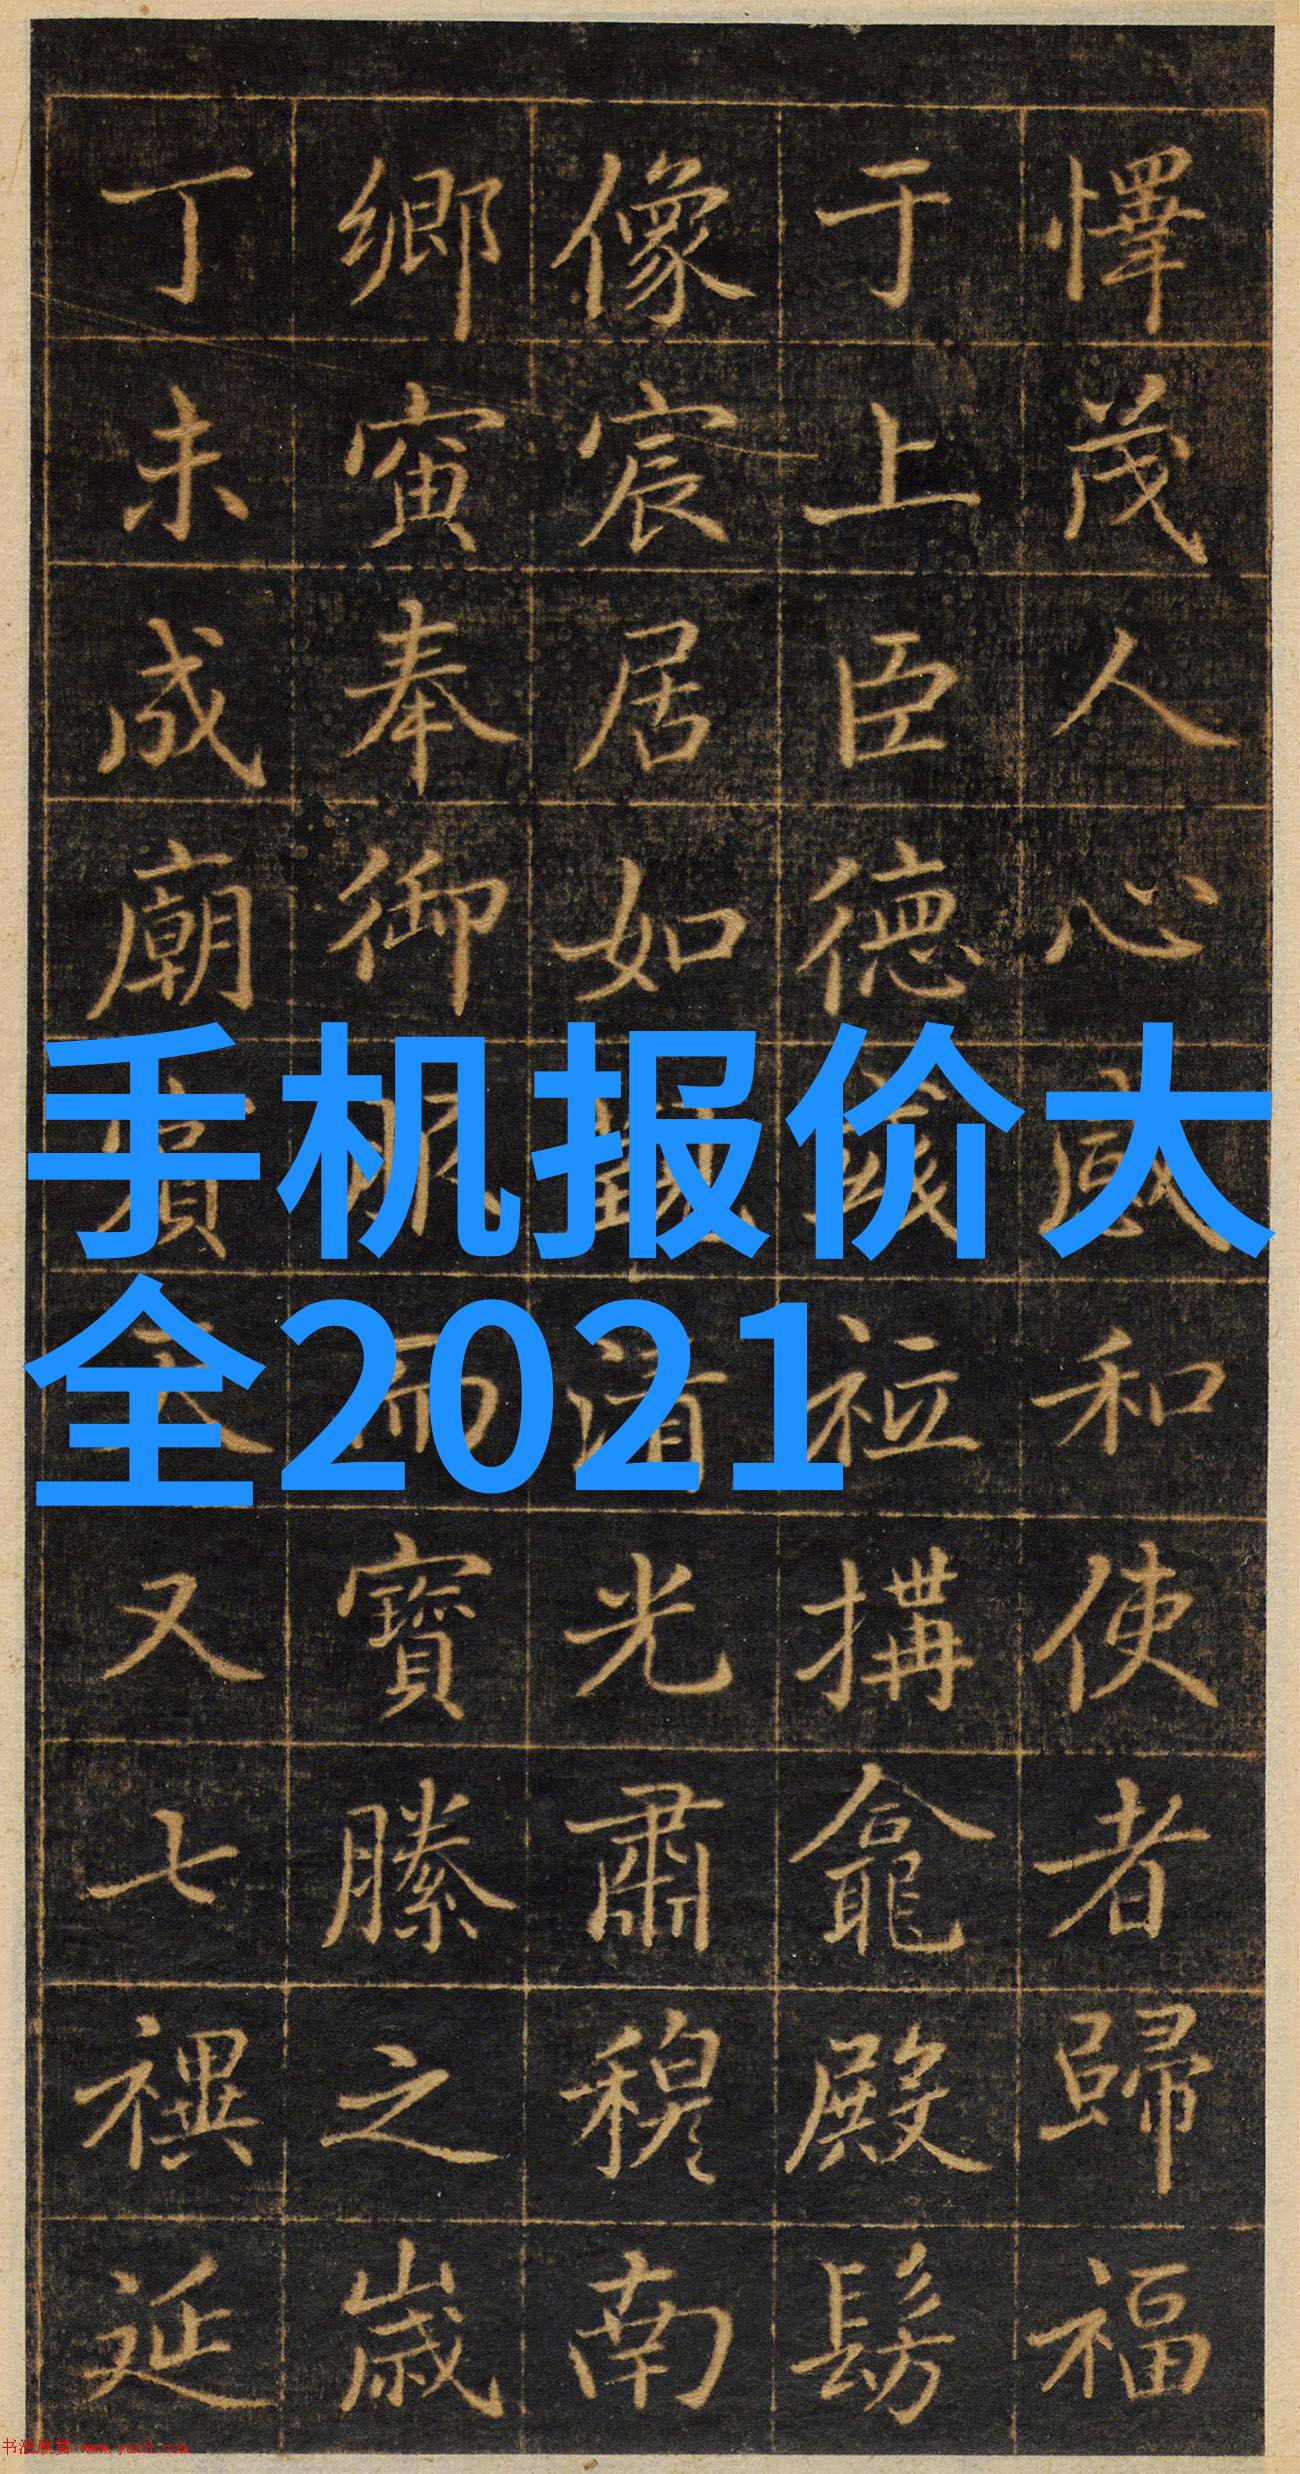 懌茂人心感和使者歸福
于上臣德搆龕殿髣
像宸居如清光肅穆南
鄉寅奉御服而寶縢之歲
丁未成廟賓天又七禩延
手机报价大
全2021
书法欣赏 www.yac8.com